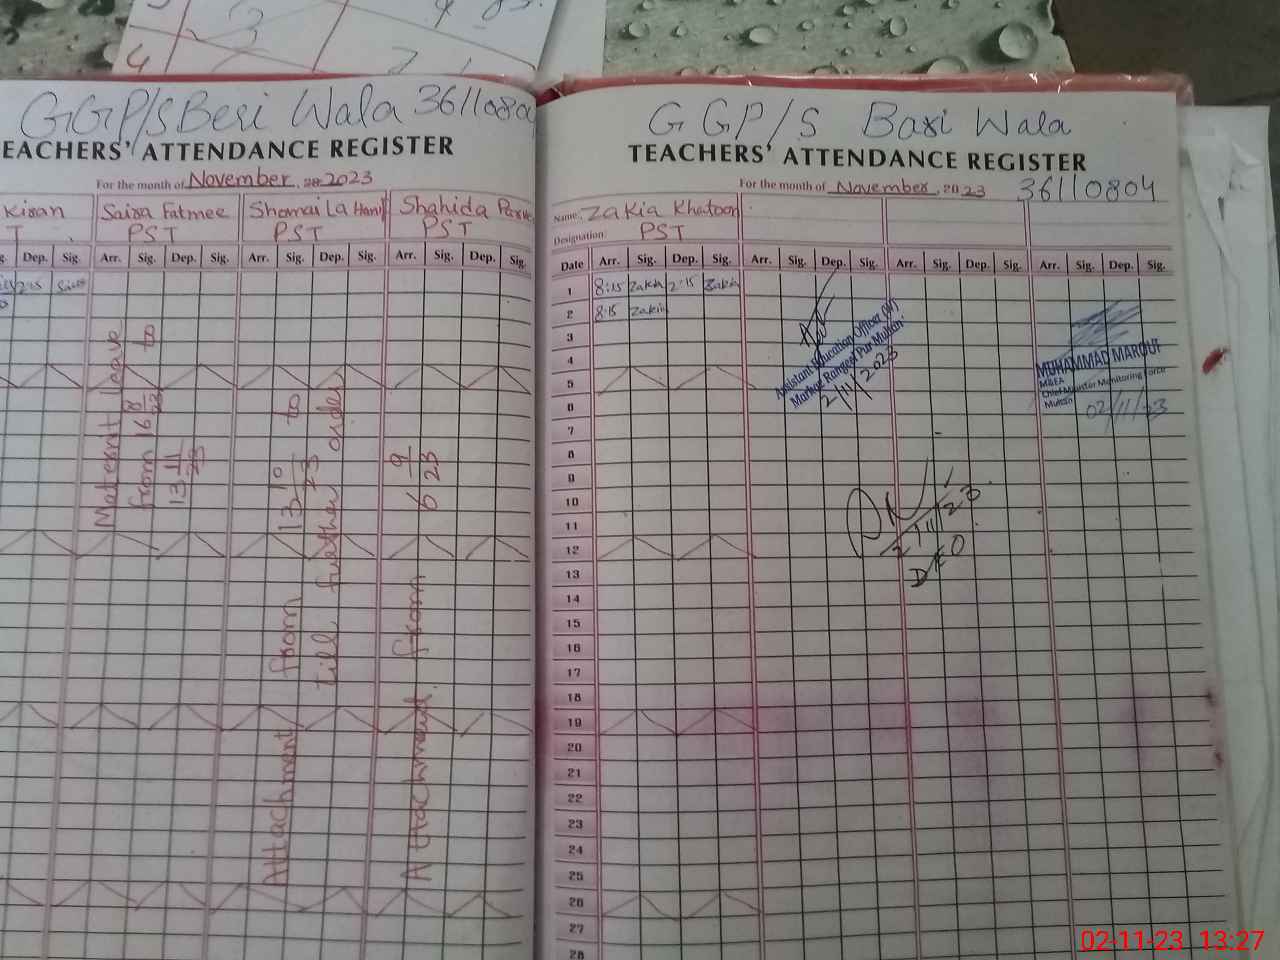 4
GGP/S Besi Wala 3611080
EACHERS' ATTENDANCE REGISTER
For the month of November, 2023
Kiran Saira Fatmee Shomaila Hanif Shahida
T PST PST PST
Dep. Sig. Arr. Sig. Dep. Sig. Arr. Sig. Dep. Sig. Arr. Sig. Dep. Sig.
2:15
Maternit leave
from 16 8/23 to
13 11/23
Attachment from 13 10/23 to
till further order
Attachmend from
6 9/23
GGP/S Basi Wala
TEACHERS' ATTENDANCE REGISTER
For the month of November, 2023 36110804
Name: Zakia Khatoon
Designation: PST
Date Arr. Sig. Dep. Sig. Arr. Sig. Dep. Sig. Arr. Sig. Dep. Sig. Arr. Sig. Dep. Sig.
1 8:15 Zakia 2:15 Zakia
2 8:15 Zakia
3
4
5
6
7
8
9
10
11
12
13
14
15
16
17
18
19
20
21
22
23
24
25
26
27
28
Assistant Education Officer (W)
Markaz Rangeel Pur Multan
2/11/2023
MUHAMMAD MAROUF
M&EA
Chief Minister Monitoring Force
Multan
02/11/23
2/11/23
DEO
02-11-23 13:27